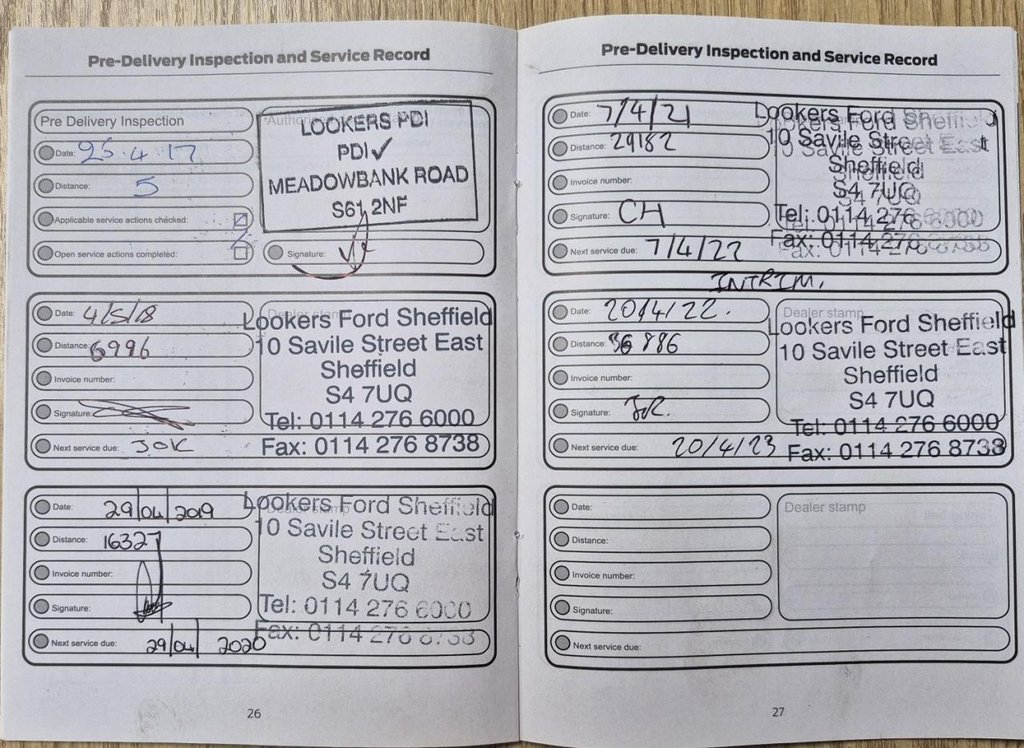 Pre-Delivery Inspection and Service Record
Pre Delivery Inspection
Date: 25.4.17
Distance: 5
Applicable service actions checked:
Open service actions completed:
LOOKERS PDI
PDI ✓
MEADOWBANK ROAD
S61 2NF
Signature:
Date: 4/5/18
Distance: 6996
Invoice number:
Signature:
Next service due: 30K
Dealer stamp
Lookers Ford Sheffield
10 Savile Street East
Sheffield
S4 7UQ
Tel: 0114 276 6000
Fax: 0114 276 8738
Date: 29/04/2019
Distance: 16327
Invoice number:
Signature:
Next service due: 29/04/2020
Dealer stamp
Lookers Ford Sheffield
10 Savile Street East
Sheffield
S4 7UQ
Tel: 0114 276 6000
Fax: 0114 276 8738
26
Pre-Delivery Inspection and Service Record
Date: 7/4/21
Distance: 29182
Invoice number:
Signature: CH
Next service due: 7/4/22
Lookers Ford Sheffield
10 Savile Street East
Sheffield
S4 7UQ
Tel: 0114 276 6000
Fax: 0114 276 8738
INTRIM.
Date: 20/4/22.
Distance: 36886
Invoice number:
Signature:
Next service due: 20/4/23
Dealer stamp
Lookers Ford Sheffield
10 Savile Street East
Sheffield
S4 7UQ
Tel: 0114 276 6000
Fax: 0114 276 8738
Date:
Distance:
Invoice number:
Signature:
Next service due:
Dealer stamp
27